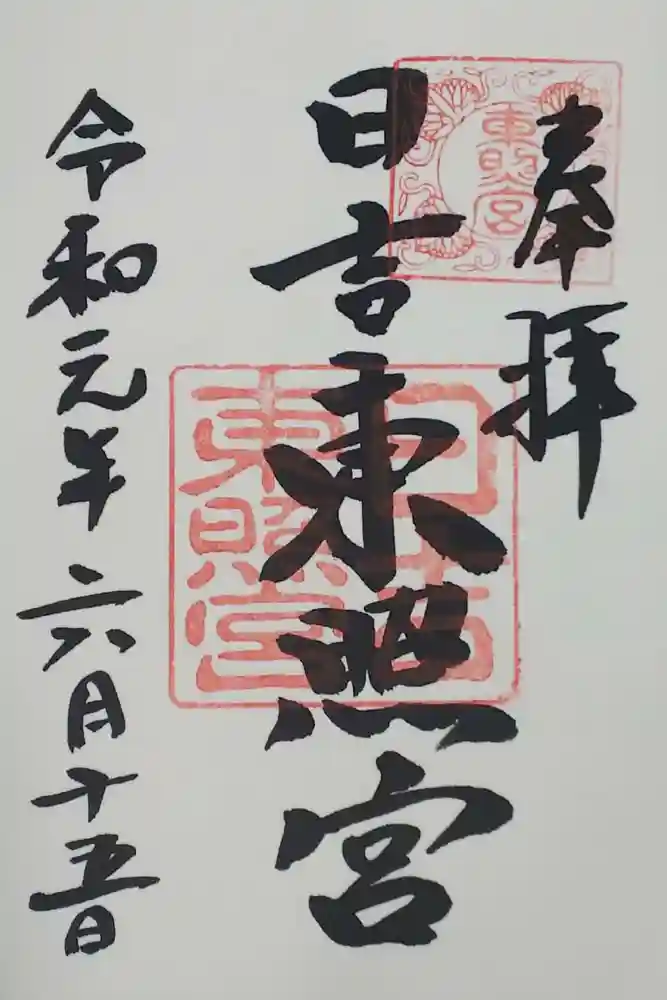 奉拝
東照宮
日吉東照宮
日吉
東照宮
令和元年六月十五日